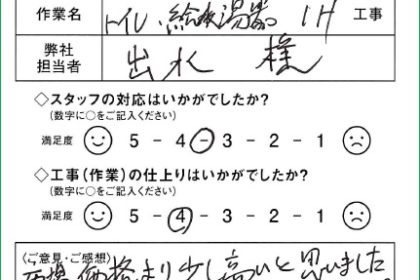 作業名 トイレ・給湯器 IH 工事
弊社担当者 出水 様
◇スタッフの対応はいかがでしたか?
(数字に○をご記入ください)
満足度 5 - 4 - 3 - 2 - 1
◇工事(作業)の仕上りはいかがでしたか?
(数字に○をご記入ください)
満足度 5 - 4 - 3 - 2 - 1
(ご意見・ご感想)
価格より少し高いと思いました。